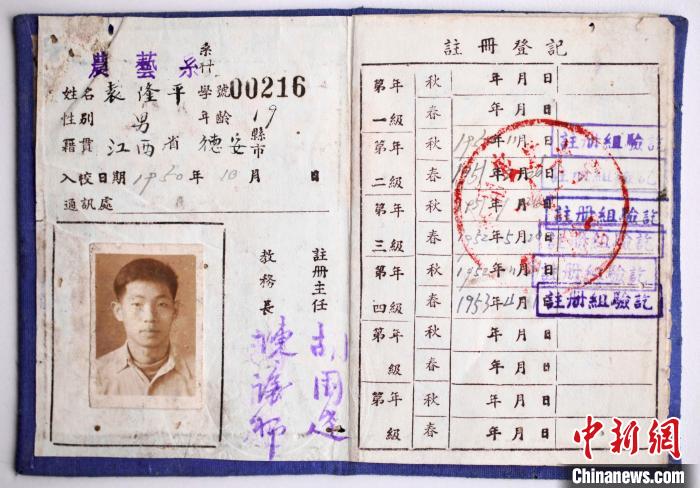 系科
農藝系
姓名 袁隆平 學號 00216
性別 男 年齡 19
籍貫 江西省 德安 縣市
入校日期 1950年10月 日
通訊處
教務長
註冊主任
註冊登記
第一年級 秋 年月日
春 年月日
第二年級 秋 年11月日 註冊組驗訖
春 1951年月日 註冊組驗訖
第三年級 秋 年月日 註冊組驗訖
春 1952年5月日 註冊組驗訖
第四年級 秋 1952年月日 註冊組驗訖
春 1953年4月日 註冊組驗訖
第年級 秋 年月日
春 年月日
第年級 秋 年月日
春 年月日
中新網
Chinanews.com